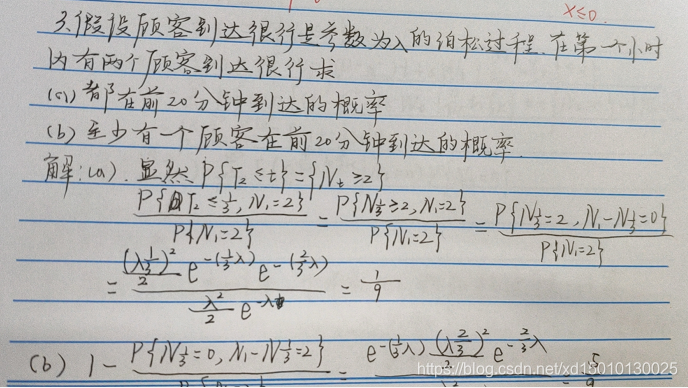 x≤0.
3.假设顾客到达银行是参数为λ的伯松过程.在第一个小时
内有两个顾客到达银行求
(a) 都在前20分钟到达的概率
(b) 至少有一个顾客在前20分钟到达的概率.
解:(a). 显然 P{T₂≤t}={Nₜ≥2}
P{T₂≤1/3, N₁=2} / P{N₁=2} = P{N_{1/3}≥2, N₁=2} / P{N₁=2} = P{N_{1/3}=2, N₁-N_{1/3}=0} / P{N₁=2}
= (λ1/3)²/2 e^{-(1/3 λ)} e^{-(2/3 λ)} / (λ²/2 e^{-λ}) = 1/9
(b) 1 - P{N_{1/3}=0, N₁-N_{1/3}=2} = e^{-(1/3 λ)} (λ2/3)² e^{-2/3 λ} = 5
https://blog.csdn.net/xd15010130025